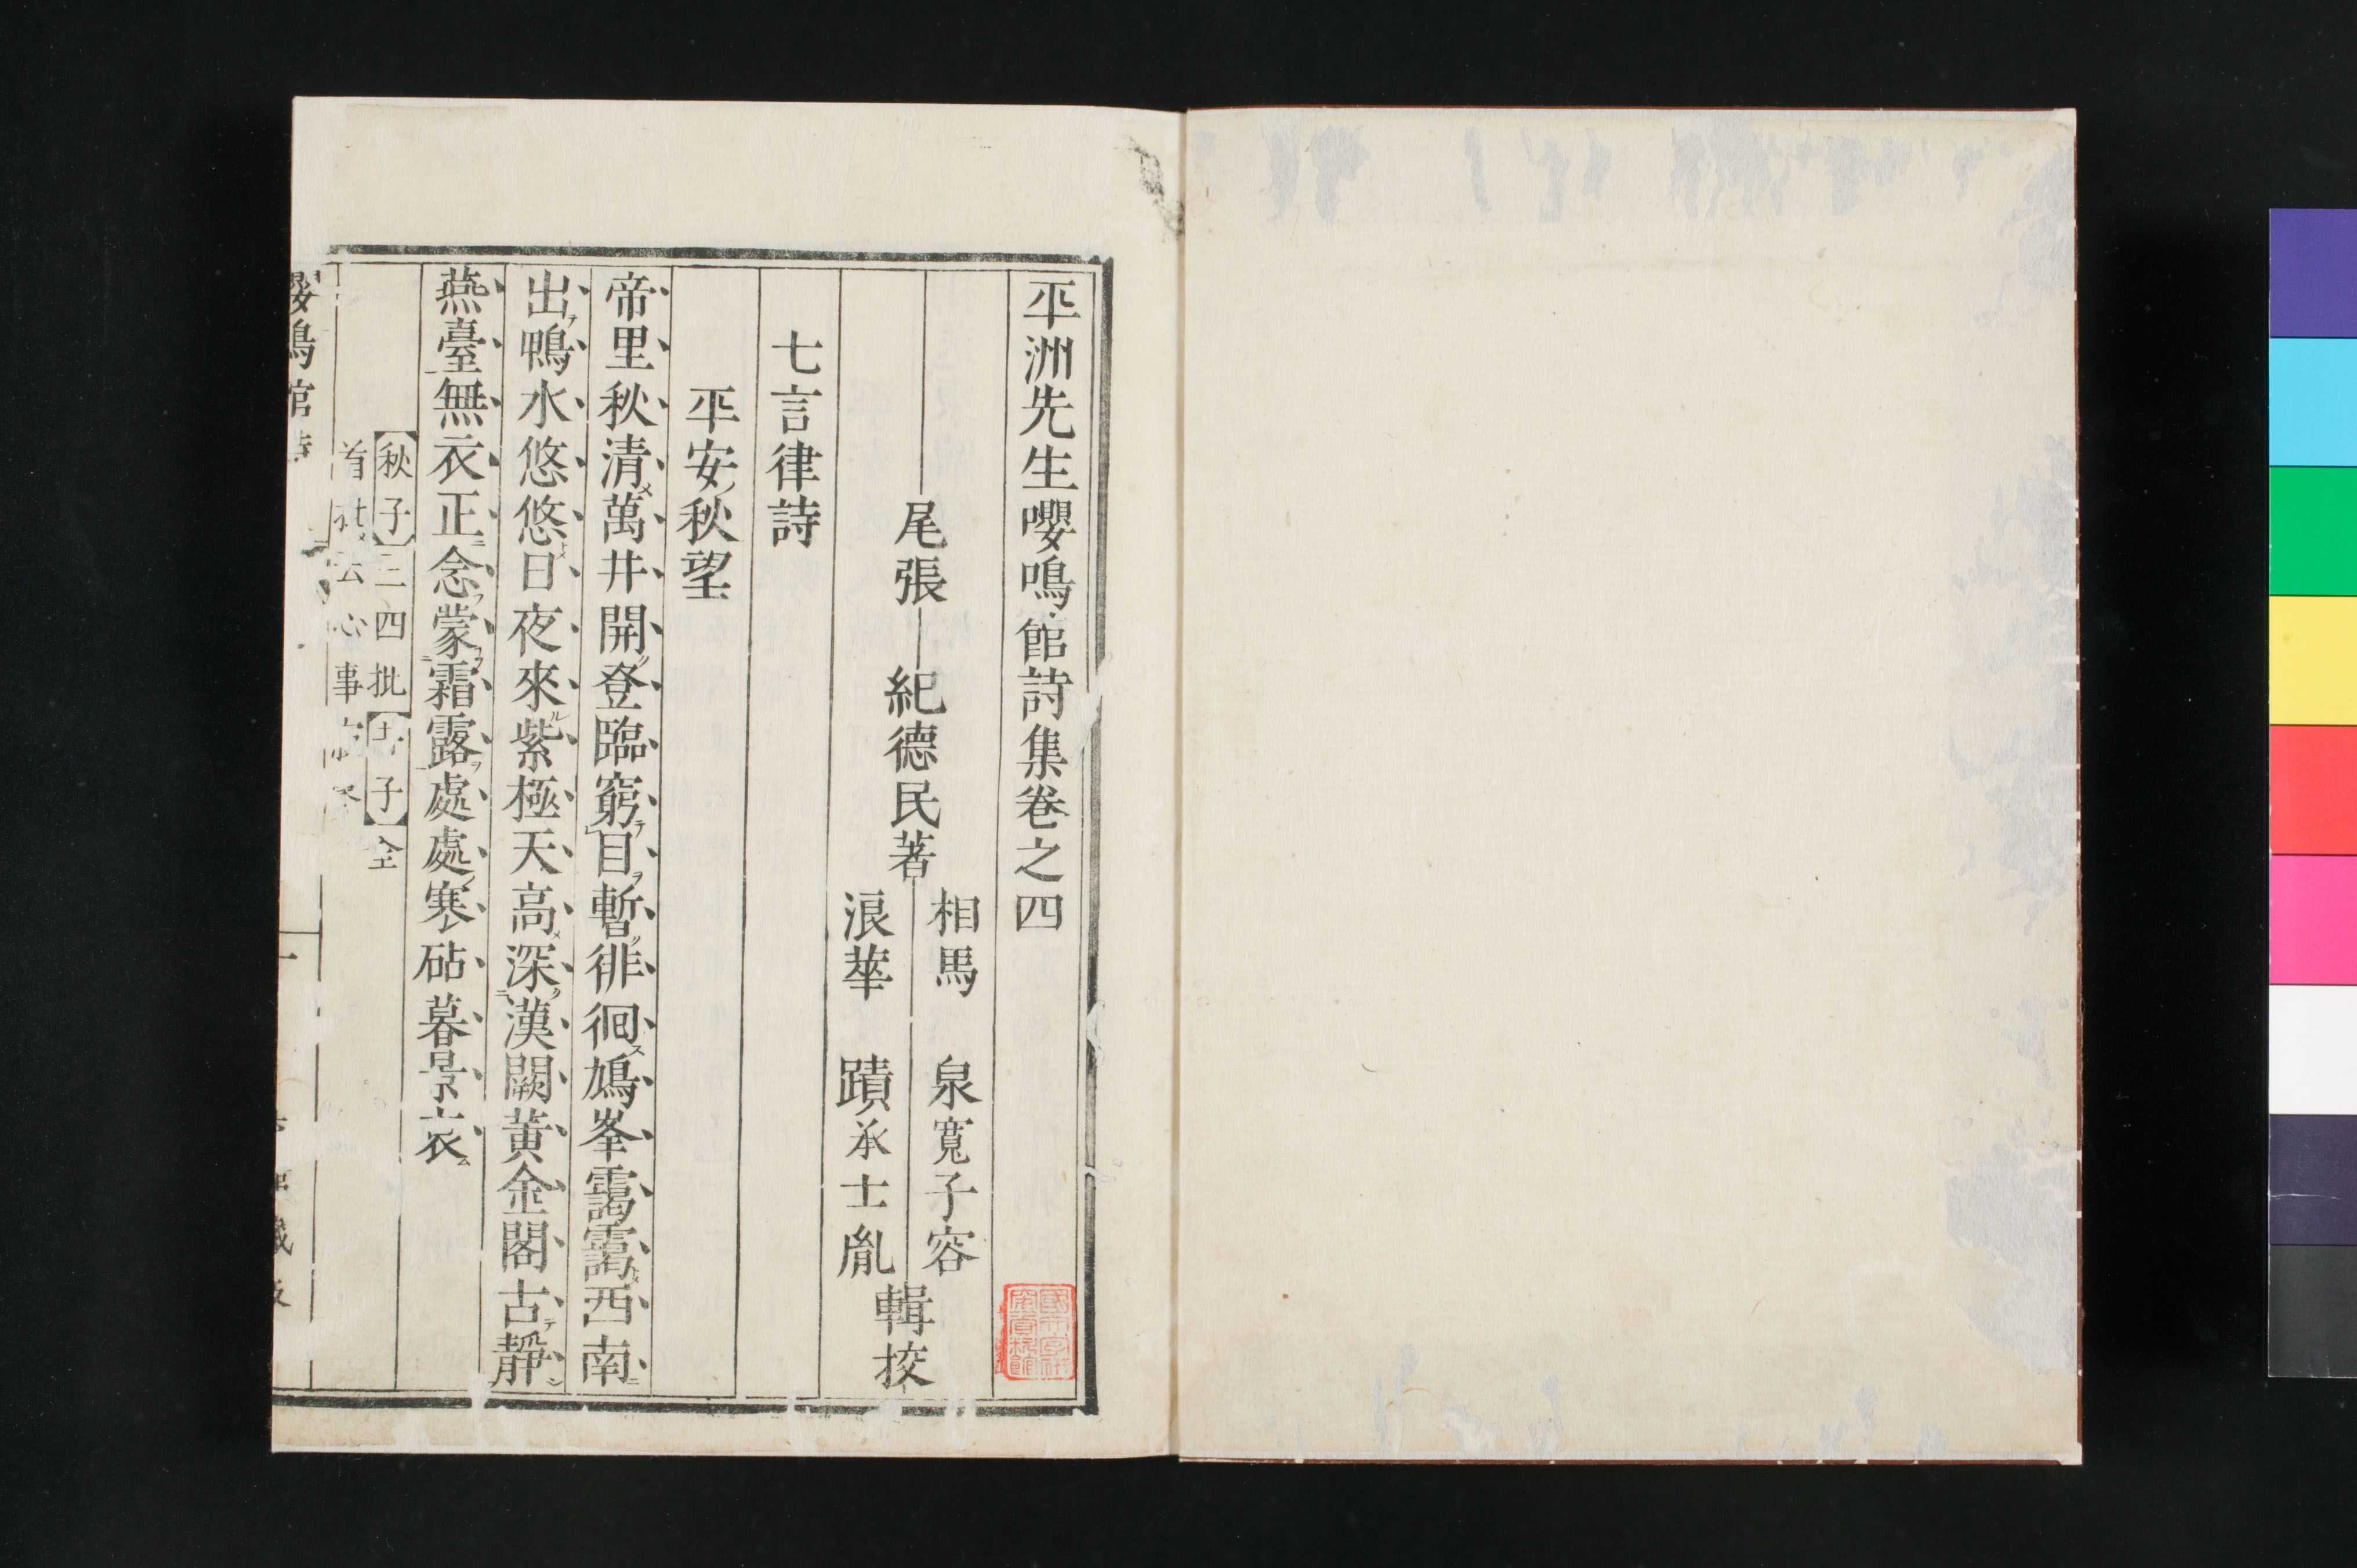 平洲先生嚶鳴館詩集卷之四
尾張 紀德民著
相馬 泉寬子容
浪華 蹟承士胤
輯挍
七言律詩
平安秋望
帝里秋清萬井開登臨窮目暫徘徊鳩峯靄靄西南
出鴨水悠悠日夜來紫極天高深漢闕黃金閣古靜
燕臺無衣正念蒙霜露處處寒砧暮景哀
【秋子】三四批
子】全
事